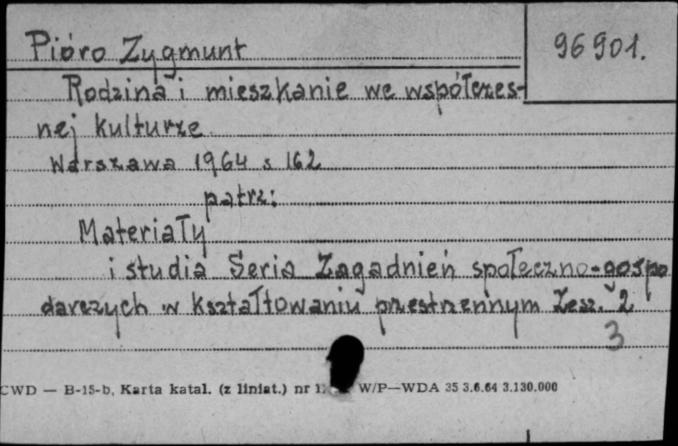 Pióro Zygmunt
96 901.
Rodzina i mieszkanie we współczes-
nej kulturze
Warszawa 1964 s 162
patrz:
Materiały
i studia Seria Zagadnień społeczno-gospo
darczych w kształtowaniu przestrzennym Zesz. 2
3
CWD — B-15-b, Karta katal. (z liniat.) nr W/P—WDA 35 3.6.64 3.130.000